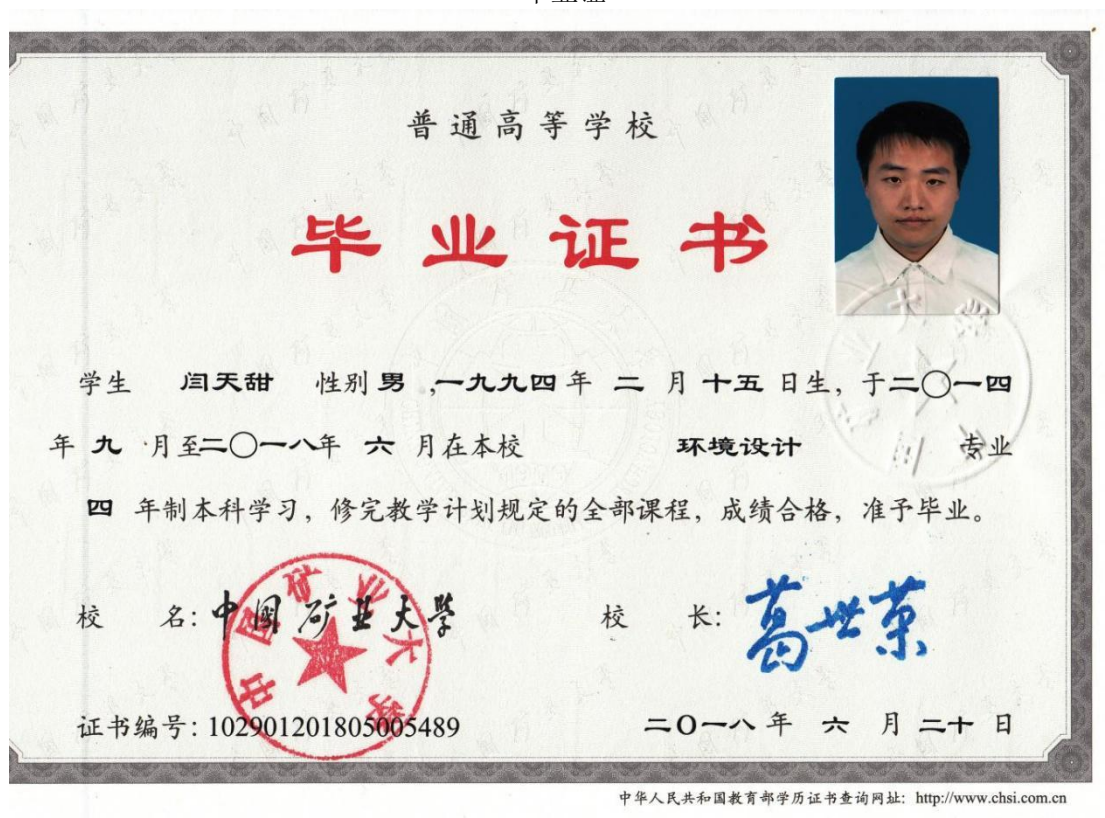 普通高等学校
毕业证书
学生 闫天甜 性别 男 ,一九九四 年 二 月 十五 日生, 于二〇一四
年 九 月至二〇一八年 六 月在本校 环境设计 专业
四 年制本科学习, 修完教学计划规定的全部课程, 成绩合格, 准予毕业。
校 名: 中国矿业大学 校 长: 葛世荣
中国矿业大学
证书编号: 102901201805005489 二〇一八 年 六 月 二十 日
中华人民共和国教育部学历证书查询网址: http://www.chsi.com.cn